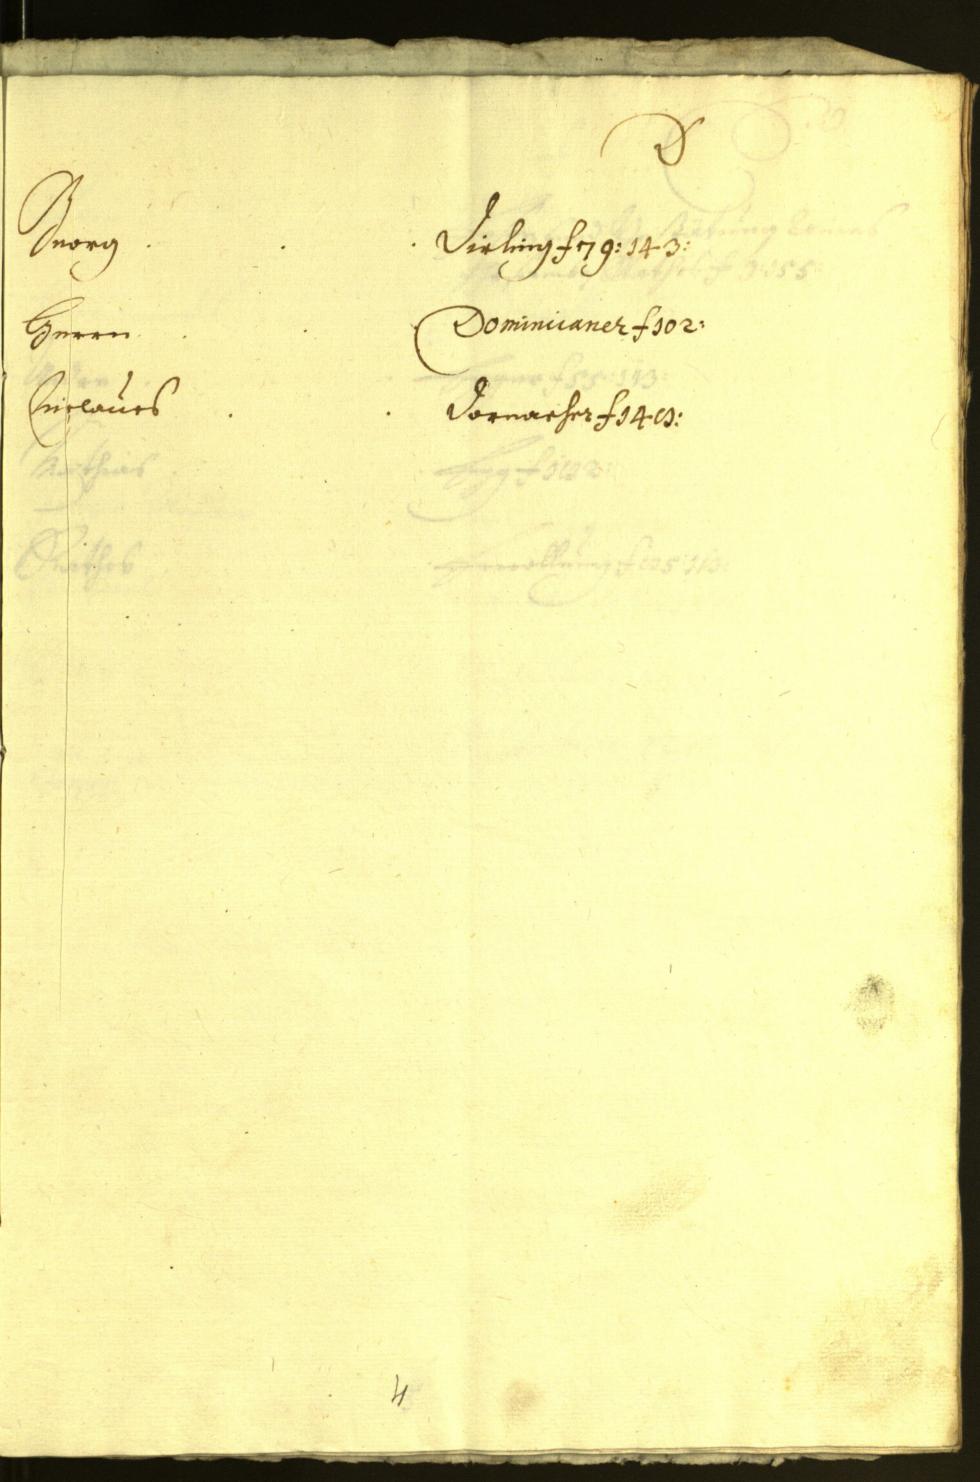 D
Georg . . . Dirling f 79: 143:
Herrn . . . Dominicaner f 102:
Niclaus . . Dornacher f 140:
4